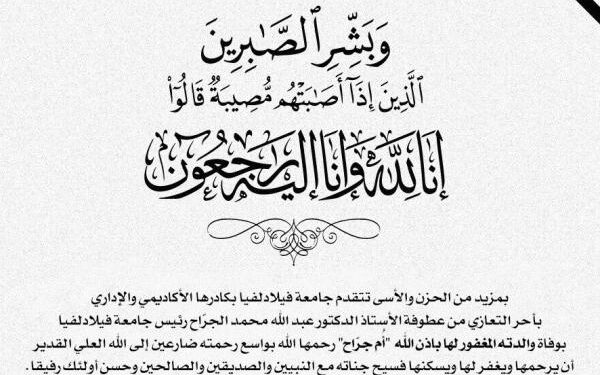 وَبَشِّرِ ٱلصَّـٰبِرِينَ
ٱلَّذِينَ إِذَآ أَصَـٰبَتْهُم مُّصِيبَةٌ قَالُوٓا۟
إنا لله وإنا إليه راجعون
بمزيد من الحزن والأسى تتقدم جامعة فيلادلفيا بكادرها الأكاديمي والإداري
بأحر التعازي من عطوفة الأستاذ الدكتور عبد الله محمد الجرّاح رئيس جامعة فيلادلفيا
بوفاة والدته المغفور لها باذن الله "أم جرّاح" رحمها الله بواسع رحمته ضارعين إلى الله العلي القدير
أن يرحمها ويغفر لها ويسكنها فسيح جناته مع النبيين والصديقين والصالحين وحسن أولئك رفيقا .